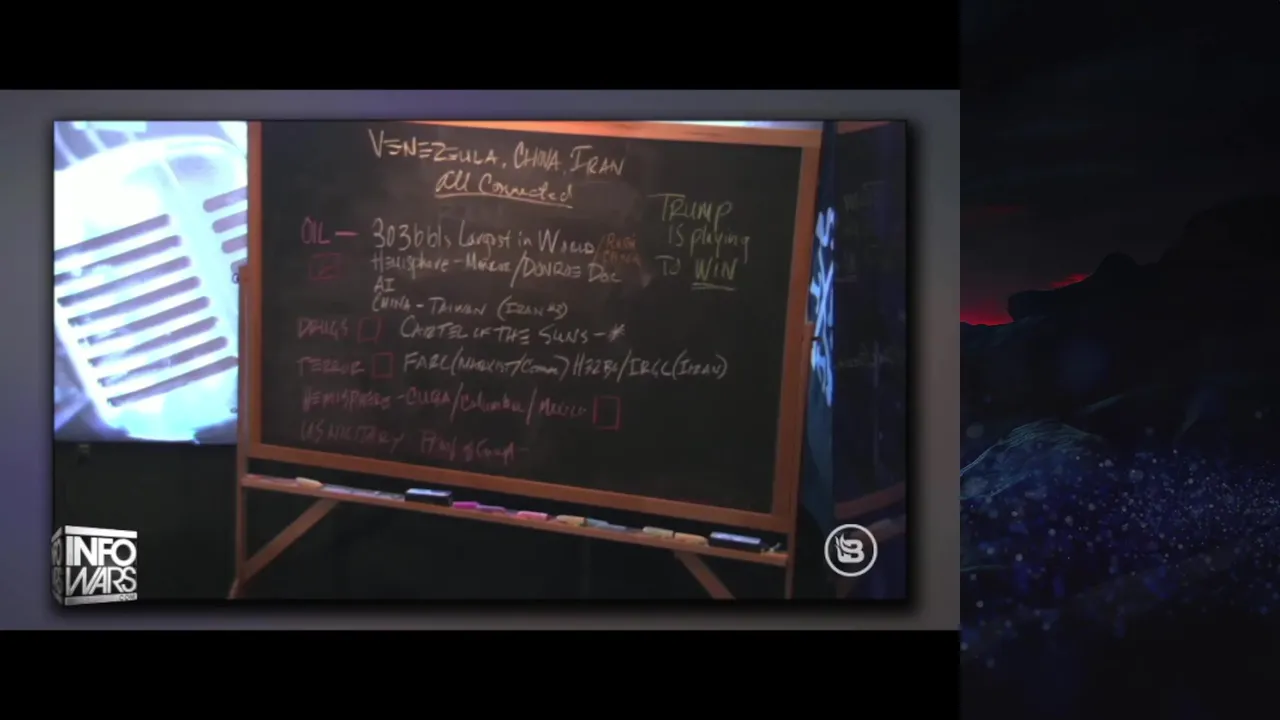 VENEZEULA, CHINA, IRAN
All Connected
TRUMP
IS playing
TO WIN
OIL — 303 bbls Largest in WORLD / RUSSIA
CHINA
Hemisphere - Monroe / DONROE DOC
AI
CHINA - TAIWAN (IRAN #2)
DRUGS CARTEL OF THE SUNS - *
TERROR FARC (MARXIST/Comm) HZZBL/IRGC (IRAN)
HEMISPHERE - CUBA/Columbia/Mexico
US MILITARY Proof of
INFO
WARS
.COM
B